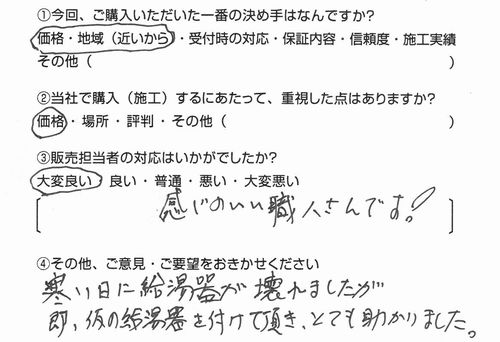 ①今回、ご購入いただいた一番の決め手はなんですか?
価格・地域（近いから）・受付時の対応・保証内容・信頼度・施工実績
その他（　）
②当社で購入（施工）するにあたって、重視した点はありますか?
価格・場所・評判・その他（　）
③販売担当者の対応はいかがでしたか?
大変良い・良い・普通・悪い・大変悪い
感じのいい職人さんです!
④その他、ご意見・ご要望をおきかせください
寒い日に給湯器が壊れましたが
即、仮の給湯器を付けて頂き、とても助かりました。